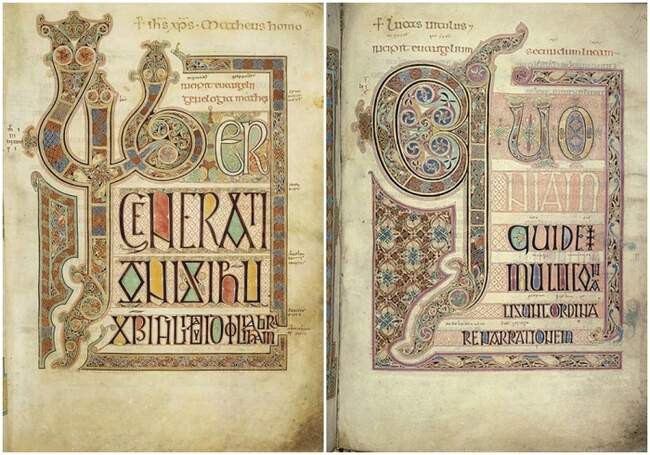 + ihs xps · Matheus homo
incipit euangelii
genelogia mathei
LIBER
GENERATI
ONISIHU
XPI FILII DAUID FILII ABRA
HAM
+ lucas uitulus
incipit euangelium secundum lucam
QUO
NIAM
QUIDEM
MULTI CO
NA
TI SUNT ORDINA
RE NARRATIONEM